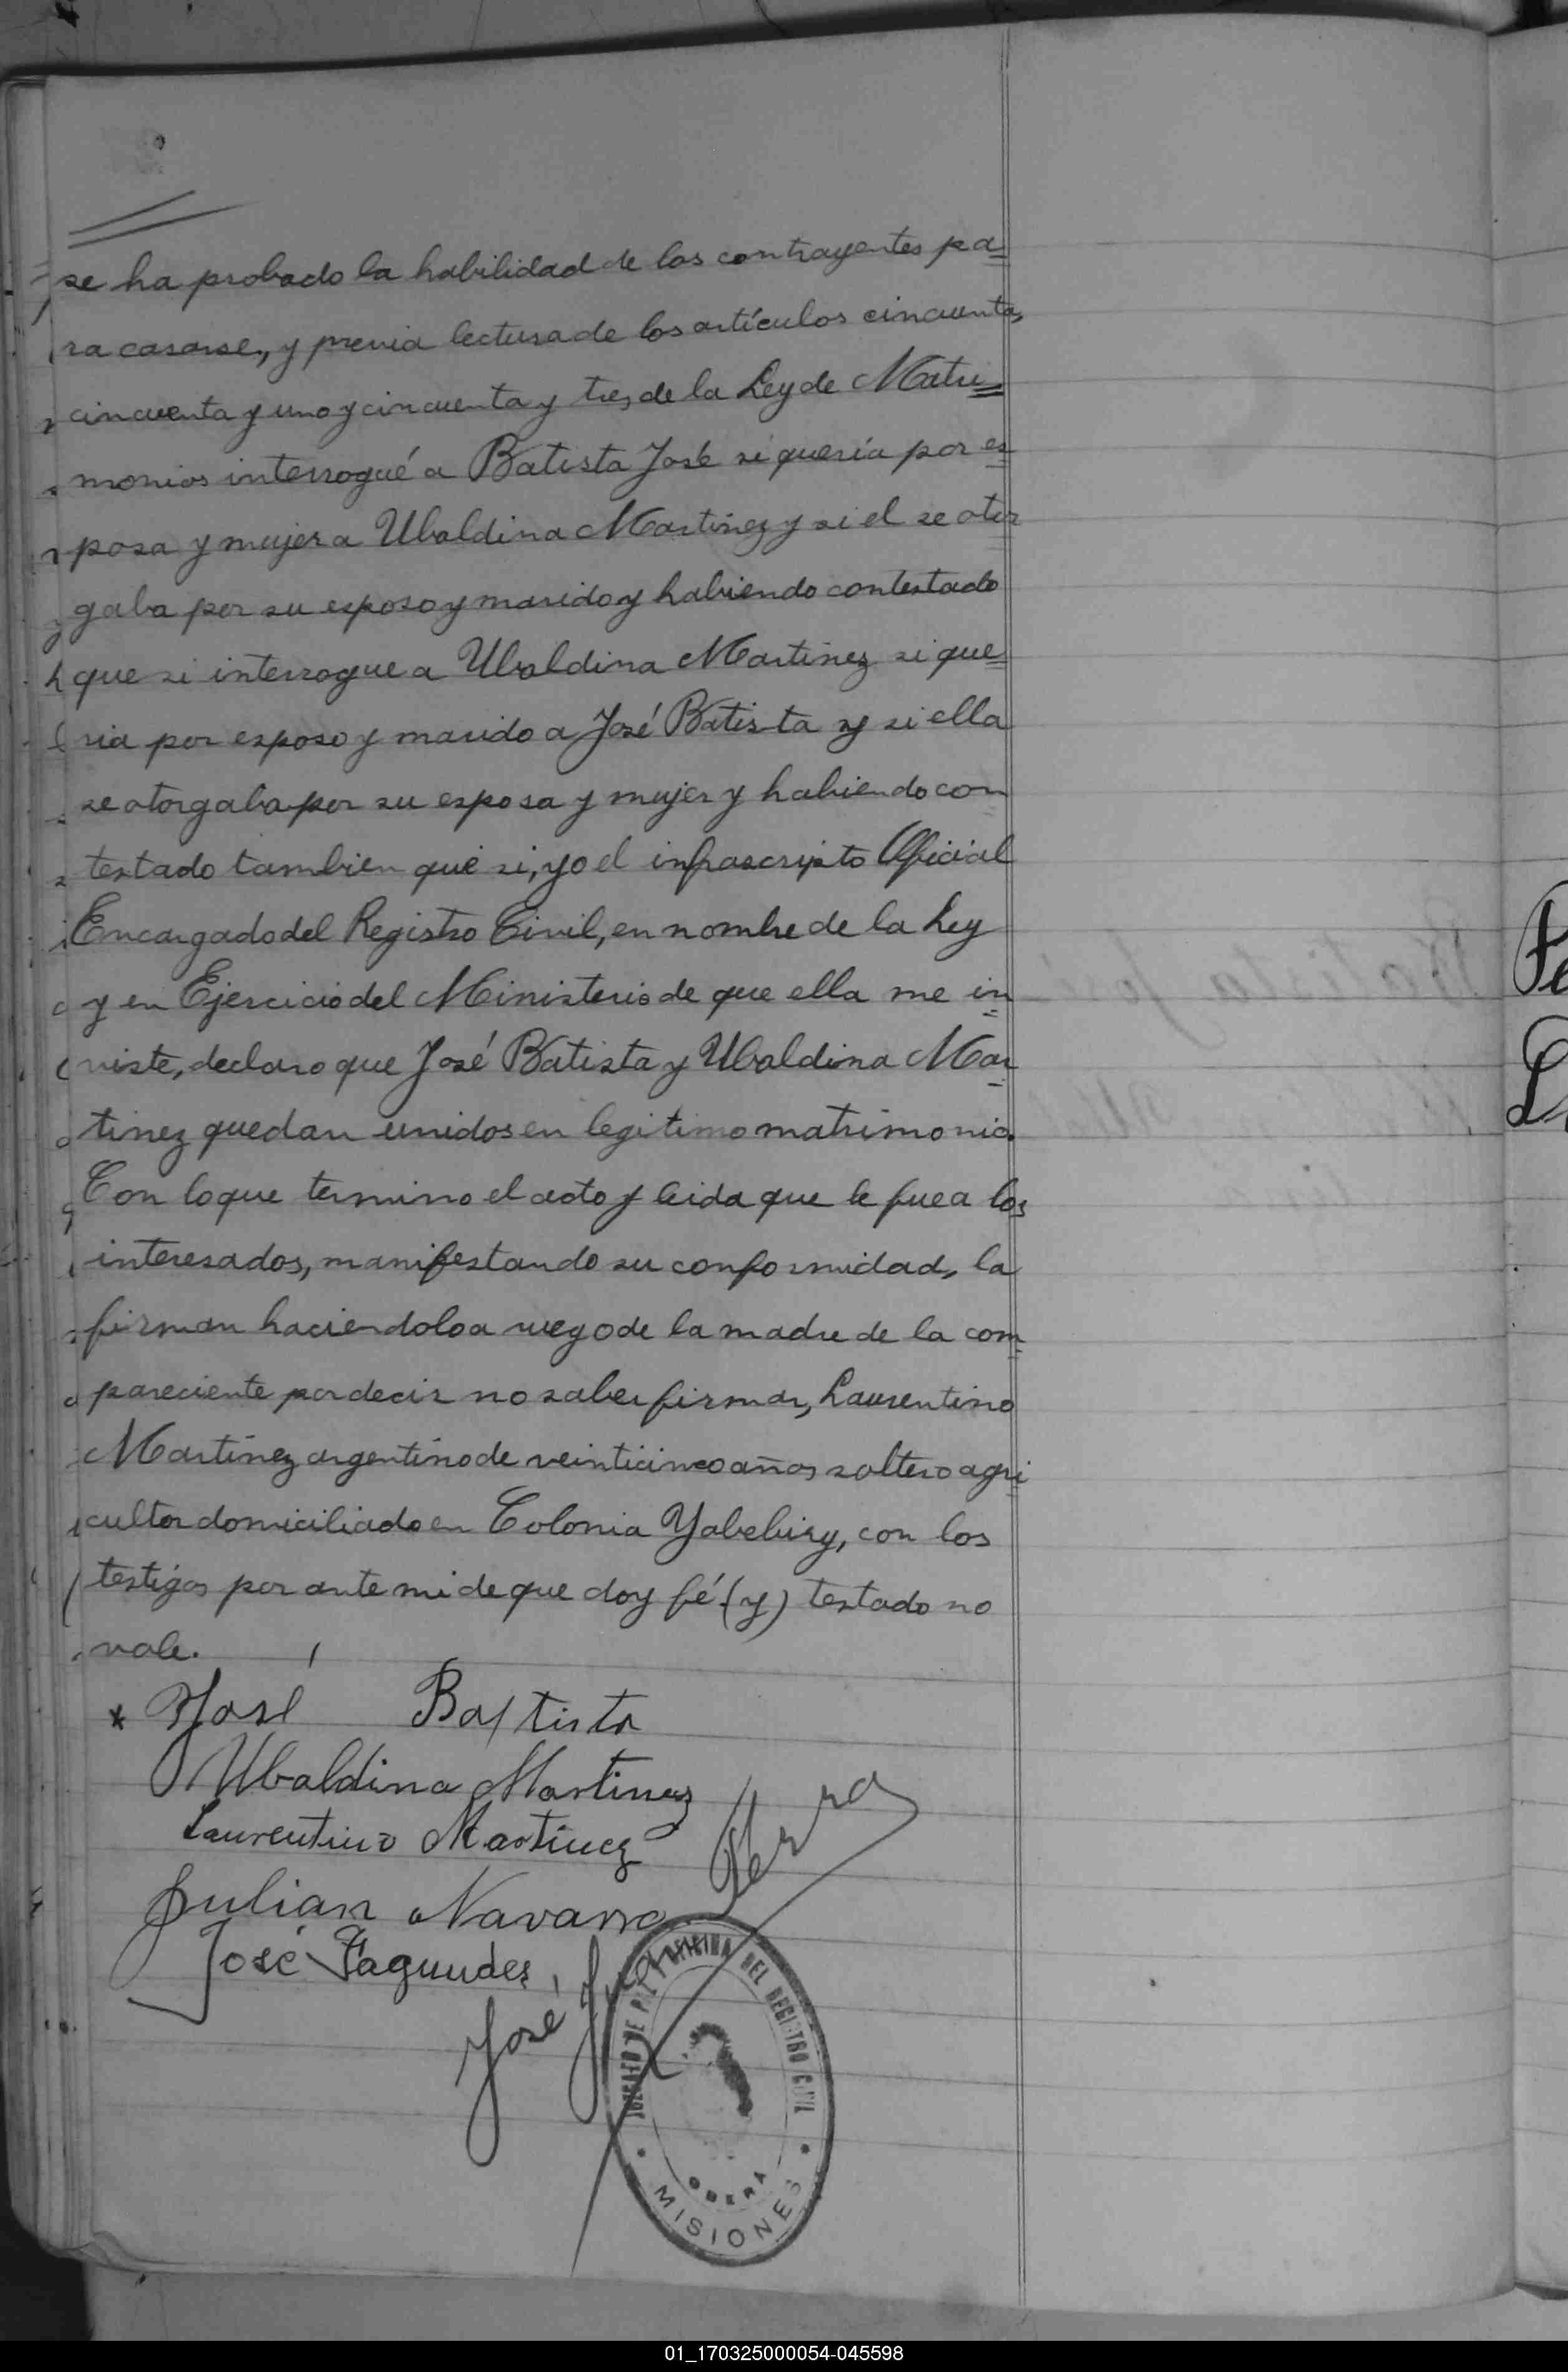 se ha probado la habilidad de los contrayentes pa=
ra casarse, y previa lectura de los artículos cincuenta,
cincuenta y uno y cincuenta y tres de la Ley de Matri=
monios interrogué a Batista José si quería por es=
posa y mujer a Ubaldina Martinez y si el se otor
gaba por su esposo y marido y habiendo contestado
que si interrogue a Ubaldina Martinez si que=
ria por esposo y marido a José Batista y si ella
se otorgaba por su esposa y mujer y habiendo con
testado tambien que si, yo el infrascripto Oficial
Encargado del Registro Civil, en nombre de la Ley
y en Ejercicio del Ministerio de que ella me in=
viste, declaro que José Batista y Ubaldina Mar=
tinez quedan unidos en legitimo matrimonio.
Con lo que termino el acto y leida que le fue a los
interesados, manifestando su conformidad, la
firman haciendolo a ruego de la madre de la com=
pareciente por decir no saber firmar, Laurentino
Martinez argentino de veinticinco años soltero agri
cultor domiciliado en Colonia Yabebiry, con los
testigos por ante mi de que doy fé (y) testado no
vale.
* José Baptista
Ubaldina Martinez
Laurentino Martinez
Julian Navarro
José Fagundes
José Juan
JUZGADO DE PAZ Y OFICINA DEL REGISTRO CIVIL
OBERA
* MISIONES *
Batista José
01_170325000054-045598